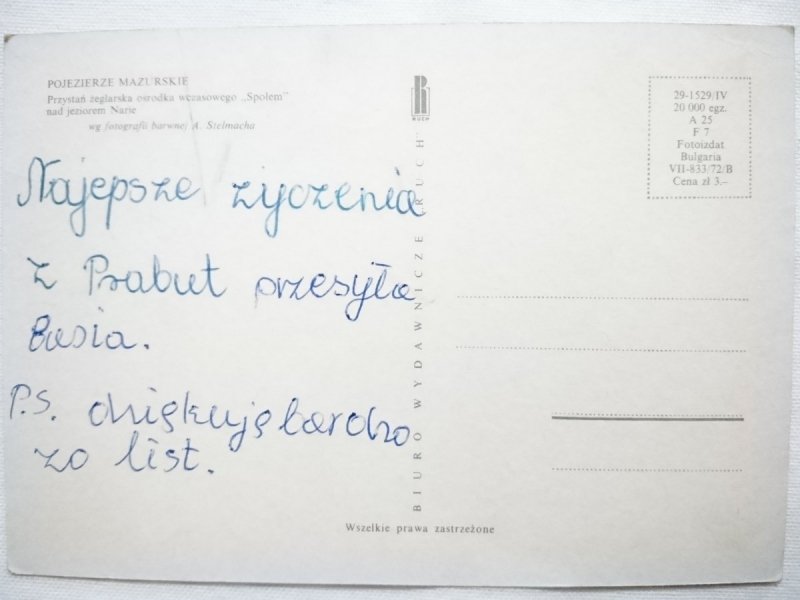 POJEZIERZE MAZURSKIE
Przystań żeglarska ośrodka wczasowego „Społem"
nad jeziorem Narie
wg fotografii barwnej A. Stelmacha
Najepsze życzenia
z Prabut przesyła
Basia.
P.S. dziękuję bardzo
za list.
R
RUCH
BIURO WYDAWNICZE „RUCH"
29-1529/IV
20 000 egz.
A 25
F 7
Fotoizdat
Bulgaria
VII-833/72/B
Cena zł 3.–
Wszelkie prawa zastrzeżone